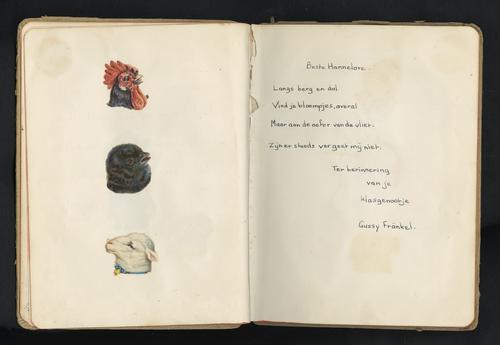 Beste Hannelore.
Langs berg en dal
Vind je bloempjes, overal
Maar aan de oefer van de vliet.
Zijn er steeds vergeet mij niet.
Ter herinnering
van je
klasgenootje
Gussy Fränkel.